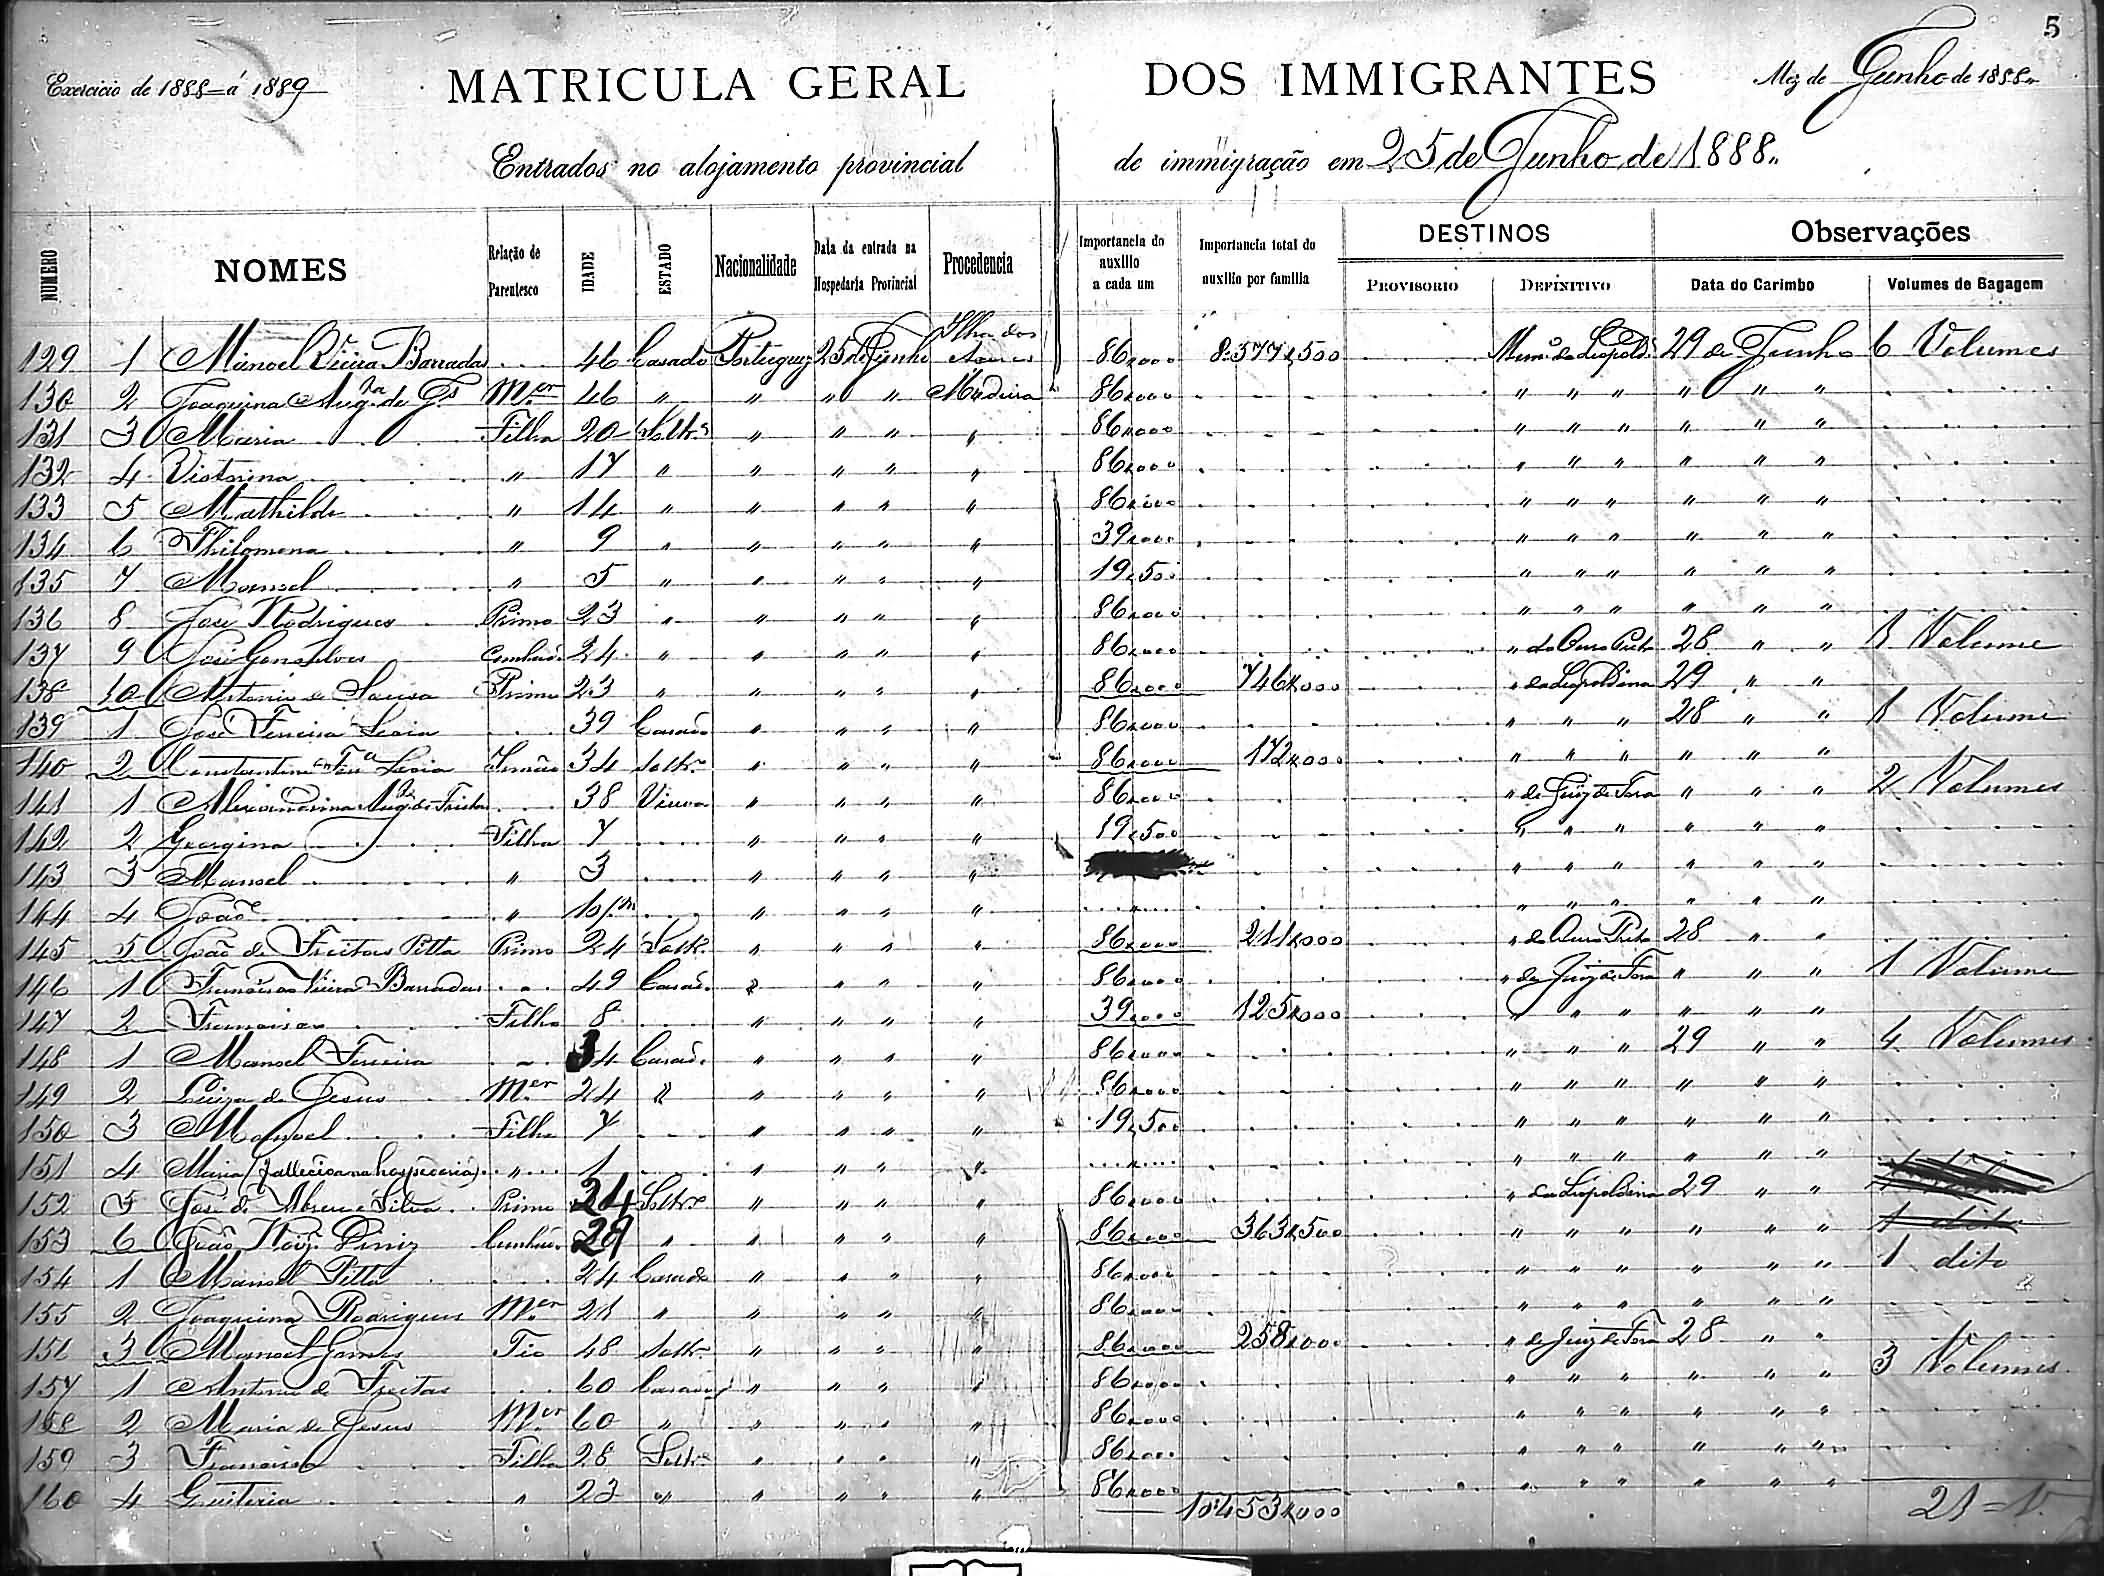 5
Exercicio de 1888 á 1889 MATRICULA GERAL DOS IMMIGRANTES Mez de Junho de 1888.
Entrados no alojamento provincial de immigração em 25 de Junho de 1888.
NUMERO NOMES Relação de Parentesco IDADE ESTADO Nacionalidade Data da entrada na Hospedaria Provincial Procedencia Importancia do auxilio a cada um Importancia total do auxilio por familia DESTINOS PROVISORIO DEFINITIVO Observações Data do Carimbo Volumes de Bagagem
129 1 Manoel Vieira Barradas 46 Casado Portuguez 25 de Junho Ilha dos 86,000 8:577,500 29 de Junho 6 Volumes
130 2 Joaquina Aug.ta de J.s M.er 46 " " " " Madeira 86,000 " " " " " "
131 3 Maria Filha 20 Soltr.a " " " " 86,000 " " " " " "
132 4 Victorina " 17 " " " " " 86,000 " " " " " "
133 5 Mathilde " 14 " " " " " 86,000 " " " " " "
134 6 Philomena " 9 " " " " " 39,000 " " " " " "
135 7 Manoel " 5 " " " " " 19,500 " " " " " "
136 8 José Rodrigues Primo 23 " " " " " 86,000 " " " " " "
137 9 José Gonsalves Cunhad.o 24 " " " " " 86,000 " do Ouro Preto 28 " " 1 Volume
138 10 Antonio de Sousa Primo 23 " " " " " 86,000 746,000 " da Leopoldina 29 " "
139 1 José Ferreira Leoia 39 Casad.o " " " " 86,000 " " " 28 " " 1 Volume
140 2 Constantino Fer.a Leoia Irmão 34 Soltr.o " " " " 86,000 172,000 " " " " " "
141 1 Alexandrina Aug.ta de Freitas 38 Viuva " " " " 86,000 " de Juiz de Fora " " " 2 Volumes
142 2 Georgina Filha 7 " " " " 19,500 " " " " " "
143 3 Manoel " 3 " " " " " " " " " "
144 4 João " 10/m " " " " " " " " " " "
145 5 João de Freitas Pitta Primo 24 Soltr.o " " " " 86,000 211,000 " do Ouro Preto 28 " "
146 1 Francisco Vieira Barradas 49 Casad.o " " " " 86,000 " de Juiz de Fora " " " 1 Volume
147 2 Francisco Filho 8 " " " " 39,000 125,000 " " " " " "
148 1 Manoel Ferreira 34 Casad.o " " " " 86,000 " " " 29 " " 4 Volumes
149 2 Luiza de Jesus M.er 24 " " " " " 86,000 " " " " " "
150 3 Manoel Filho 7 " " " " 19,500 " " " " " "
151 4 Maria (fallecida na hospedaria) " 1 " " " " " " " " " " "
152 5 José de Abreu e Silva Primo 24 Soltr.o " " " " 86,000 " da Leopoldina 29 " "
153 6 João Roiz. Diniz Cunhad.o 29 " " " " " 86,000 363,500 " " " " " " 1 dito
154 1 Manoel Pitta 24 Casado " " " " 86,000 " " " " " " 1 dito
155 2 Joaquina Rodrigues M.er 21 " " " " " 86,000 " " " " " "
156 3 Manoel Gomes Tio 48 Soltr.o " " " " 86,000 258,000 " de Juiz de Fora 28 " "
157 1 Antonio de Freitas 60 Casado " " " " 86,000 " " " " " " 3 Volumes
158 2 Maria de Jesus M.er 60 " " " " " 86,000 " " " " " "
159 3 Francisca Filha 28 Soltr.a " " " " 86,000 " " " " " "
160 4 Quiteria " 23 " " " " " 86,000 " " " " " "
10:453,000 21 = V.